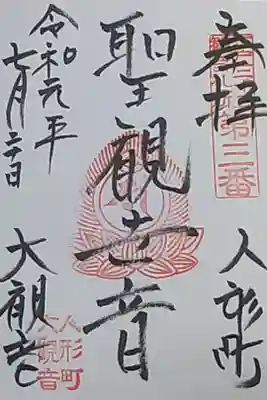 奉拝
第三番
人形町
聖観世音
令和元年
七月二十日
大観音
人形町
大観音